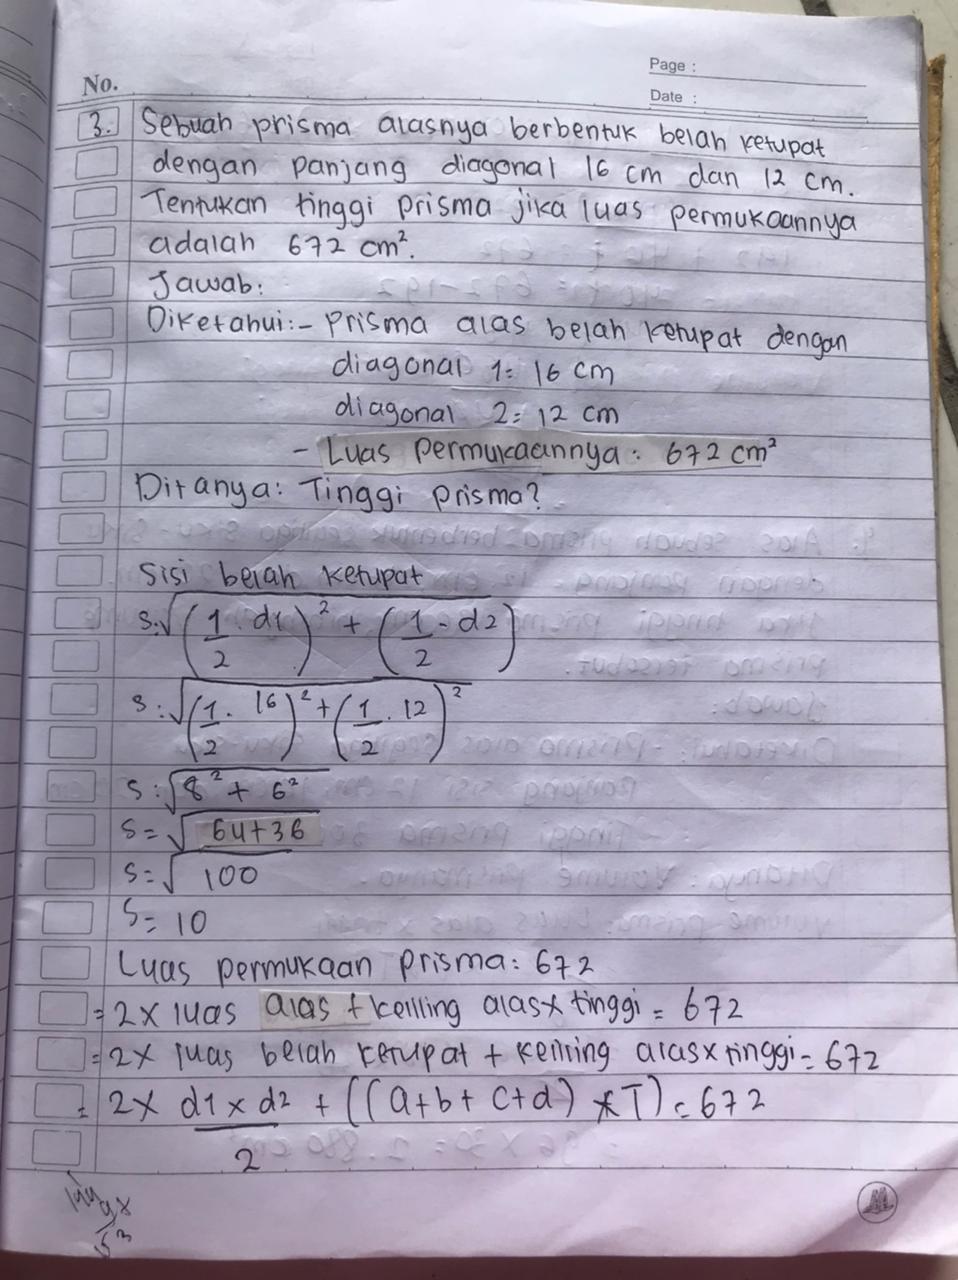 Page :
No.
Date :
3. Sebuah prisma alasnya berbentuk belah ketupat
dengan panjang diagonal 16 cm dan 12 cm.
Tentukan tinggi prisma jika luas permukaannya
adalah 672 cm².
Jawab:
Diketahui:- prisma alas belah ketupat dengan
diagonal 1= 16 cm
diagonal 2= 12 cm
- Luas permukaannya : 672 cm²
Ditanya: Tinggi prisma?
Sisi belah ketupat
s:√(1/2 . d1)² + (1/2 - d2)
s:√(1/2 . 16)² + (1/2 . 12)²
s:√8² + 6²
s=√64+36
s=√100
s= 10
Luas permukaan prisma: 672
= 2x luas alas + keliling alas x tinggi = 672
= 2x luas belah ketupat + keliling alas x tinggi = 672
= 2x d1 x d2/2 + ((a+b+c+d) x T) = 672